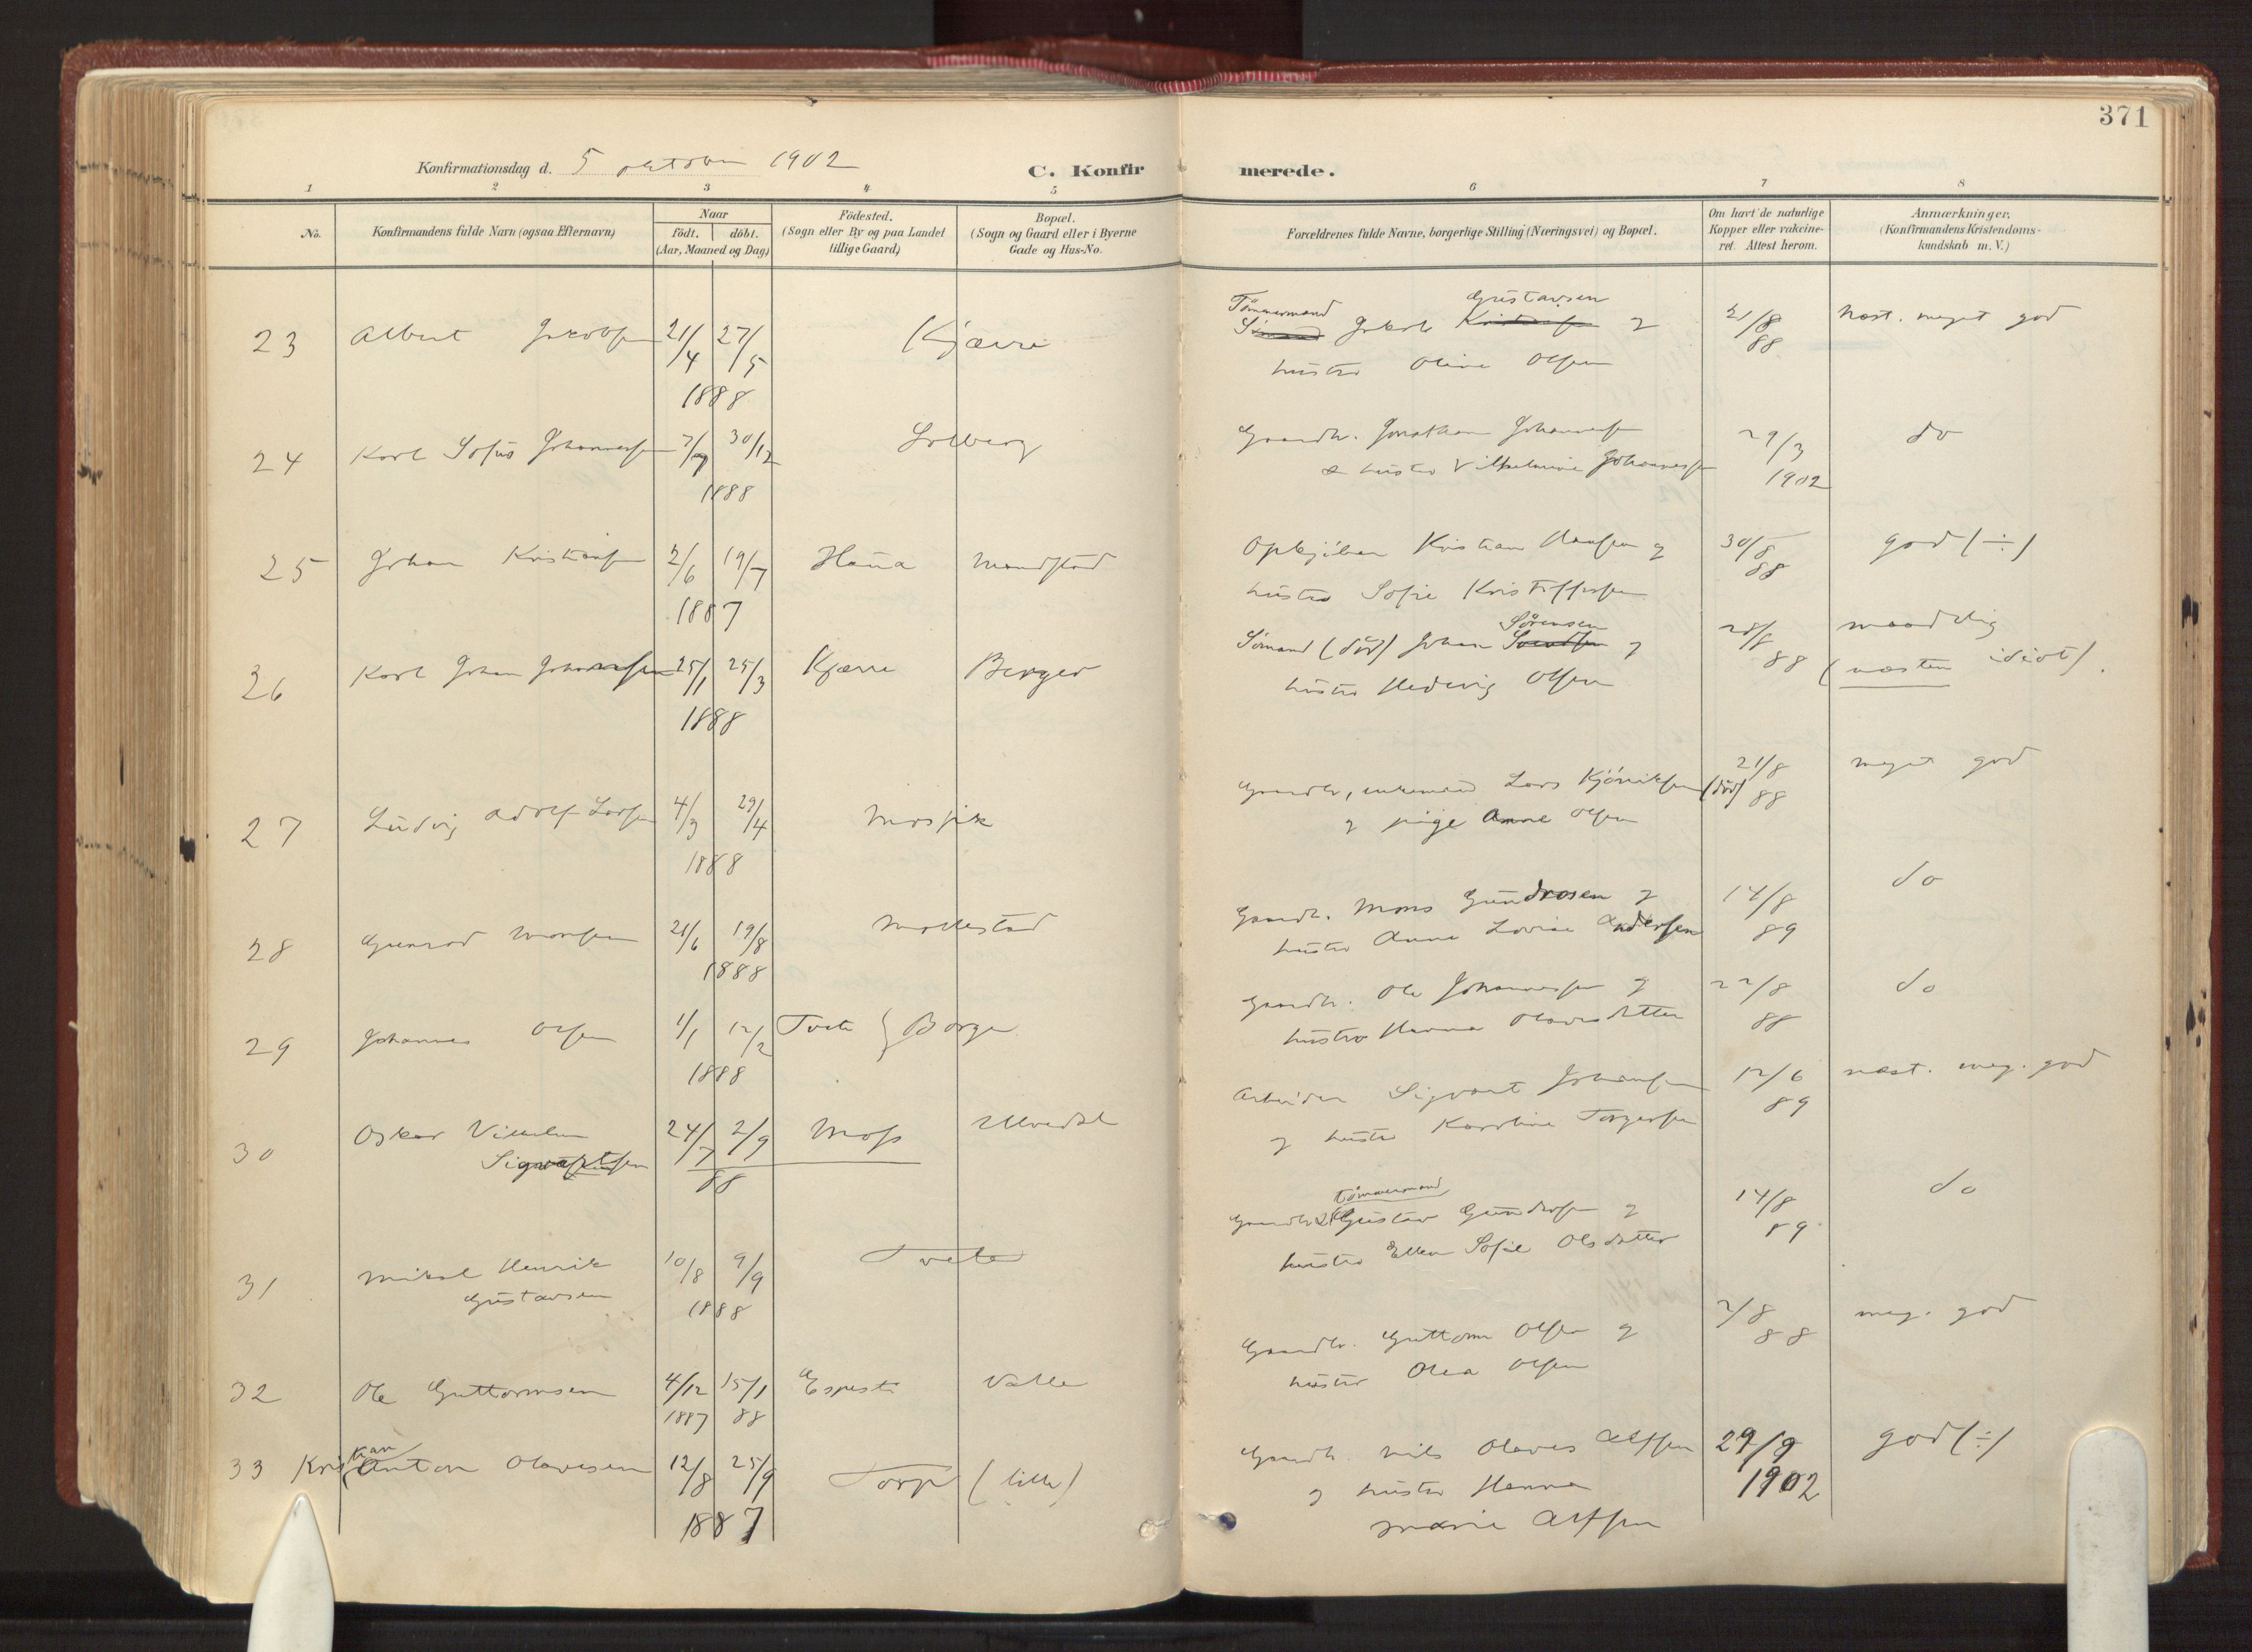 371
Konfirmationsdag d. 5 oktober 1902
C. Konfirmerede.
1 2 3 4 5 6 7 8
No.
Konfirmandens fulde Navn (ogsaa Efternavn)
Naar
født. døbt.
(Aar, Maaned og Dag)
Fødested.
(Sogn eller By og paa Landet
tillige Gaard)
Bopæl.
(Sogn og Gaard eller i Byerne
Gade og Hus-No.
Forældrenes fulde Navne, borgerlige Stilling (Næringsvei) og Bopæl.
Om havt de naturlige
Kopper eller vakcine-
ret. Attest herom.
Anmærkninger.
(Konfirmandens Kristendoms-
kundskab m. V.)
23 Albert Jakobsen 21/4 27/5 Kjærre
1888
Tømmermand Gustavsen
Jakob og 21/8 næst. meget god
hustro Oline Olsen 88
24 Karl Sofus Johannessen 7/9 30/12 Solberg
1888
Gaardbr. Jonathan Johannessen 29/3 do
& hustro Vilhelmine Johannessen 1902
25 Johan Kristiansen 2/6 19/7
1887
Kristian Hansen og 30/8 god (÷)
hustro Sofie Kristoffersen 88
26 Karl Johan Johannessen 25/1 25/3 Kjærre Berger
1888
Sørensen
Sømand (død) Johan og 28/8 maadelig
hustro Hedevig Olsen 88 (næsten idiot).
27 Ludvig Adolf Larsen 4/3 29/4
1888
Gaardbr., enkemand Lars (død) 21/8 meget god
og pige Anne Olsen 88
28 Gunerod Monsen 21/6 19/8 Mollestad
1888
Gaardbr. Mons Gundrosen og 14/8 do
hustro Anne Lovise Andersen 89
29 Johannes Olsen 1/1 12/2 Tveita } Borge
1888
Gaardbr. Ole Johannessen og 22/8 do
hustro Hanna Olavesdatter 88
30 Oskar Vilhelm 24/7 2/9 Moss
Sigvartsen 88
Arbeider Sigvart Johansen 12/6 næst. meg. god
og hustro Karoline Torgersen 89
31 Mikal Henrik 10/8 9/9 Tveita
Gustavsen 1888
Tømmermand
Gaardbr. & Gustav Gundrosen og 14/8 do
hustro Ellen Sofie Olsdatter 89
32 Ole Guttormsen 4/12 15/1 Valle
1887 88
Gaardbr. Guttorm Olsen og 2/8 meg. god
hustro Olea Olsen 88
33 Kristian Anton Olavesen 12/8 25/9 Torp (lille)
1887
Gaardbr. Nils Olaves Alfsen 29/9 god (÷)
og hustro Hanna 1902
Marie Alfsen